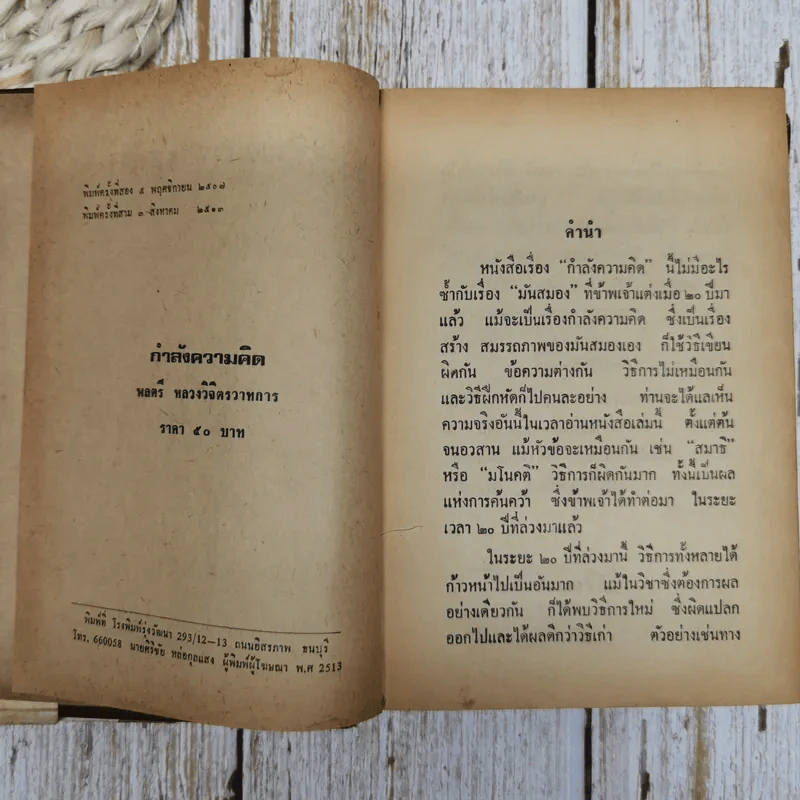 พิมพ์ครั้งที่สอง ๕ พฤศจิกายน ๒๕๐๗
พิมพ์ครั้งที่สาม ๓ สิงหาคม ๒๕๑๓
กำลังความคิด
พลตรี หลวงวิจิตรวาทการ
ราคา ๕๐ บาท
พิมพ์ที่ โรงพิมพ์รุ่งวัฒนา 293/12—13 ถนนอิสรภาพ ธนบุรี
โทร. 660058 นายศิริชัย หล่อกุลแสง ผู้พิมพ์ผู้โฆษณา พ.ศ 2513
คำนำ
หนังสือเรื่อง “กำลังความคิด” นี้ไม่มีอะไร
ซ้ำกับเรื่อง “มันสมอง” ที่ข้าพเจ้าแต่งเมื่อ ๒๐ ปีมา
แล้ว แม้จะเป็นเรื่องกำลังความคิด ซึ่งเป็นเรื่อง
สร้าง สมรรถภาพของมันสมองเอง ก็ใช้วิธีเขียน
ผิดกัน ข้อความต่างกัน วิธีการไม่เหมือนกัน
และวิธีฝึกหัดก็ไปคนละอย่าง ท่านจะได้แลเห็น
ความจริงอันนี้ในเวลาอ่านหนังสือเล่มนี้ ตั้งแต่ต้น
จนอวสาน แม้หัวข้อจะเหมือนกัน เช่น “สมาธิ”
หรือ “มโนคติ” วิธีการก็ผิดกันมาก ทั้งนี้เป็นผล
แห่งการค้นคว้า ซึ่งข้าพเจ้าได้ทำต่อมา ในระยะ
เวลา ๒๐ ปีที่ล่วงมาแล้ว
ในระยะ ๒๐ ปีที่ล่วงมานี้ วิธีการทั้งหลายได้
ก้าวหน้าไปเป็นอันมาก แม้ในวิชาซึ่งต้องการผล
อย่างเดียวกัน ก็ได้พบวิธีการใหม่ ซึ่งผิดแปลก
ออกไปและได้ผลดีกว่าวิธีเก่า ตัวอย่างเช่นทาง